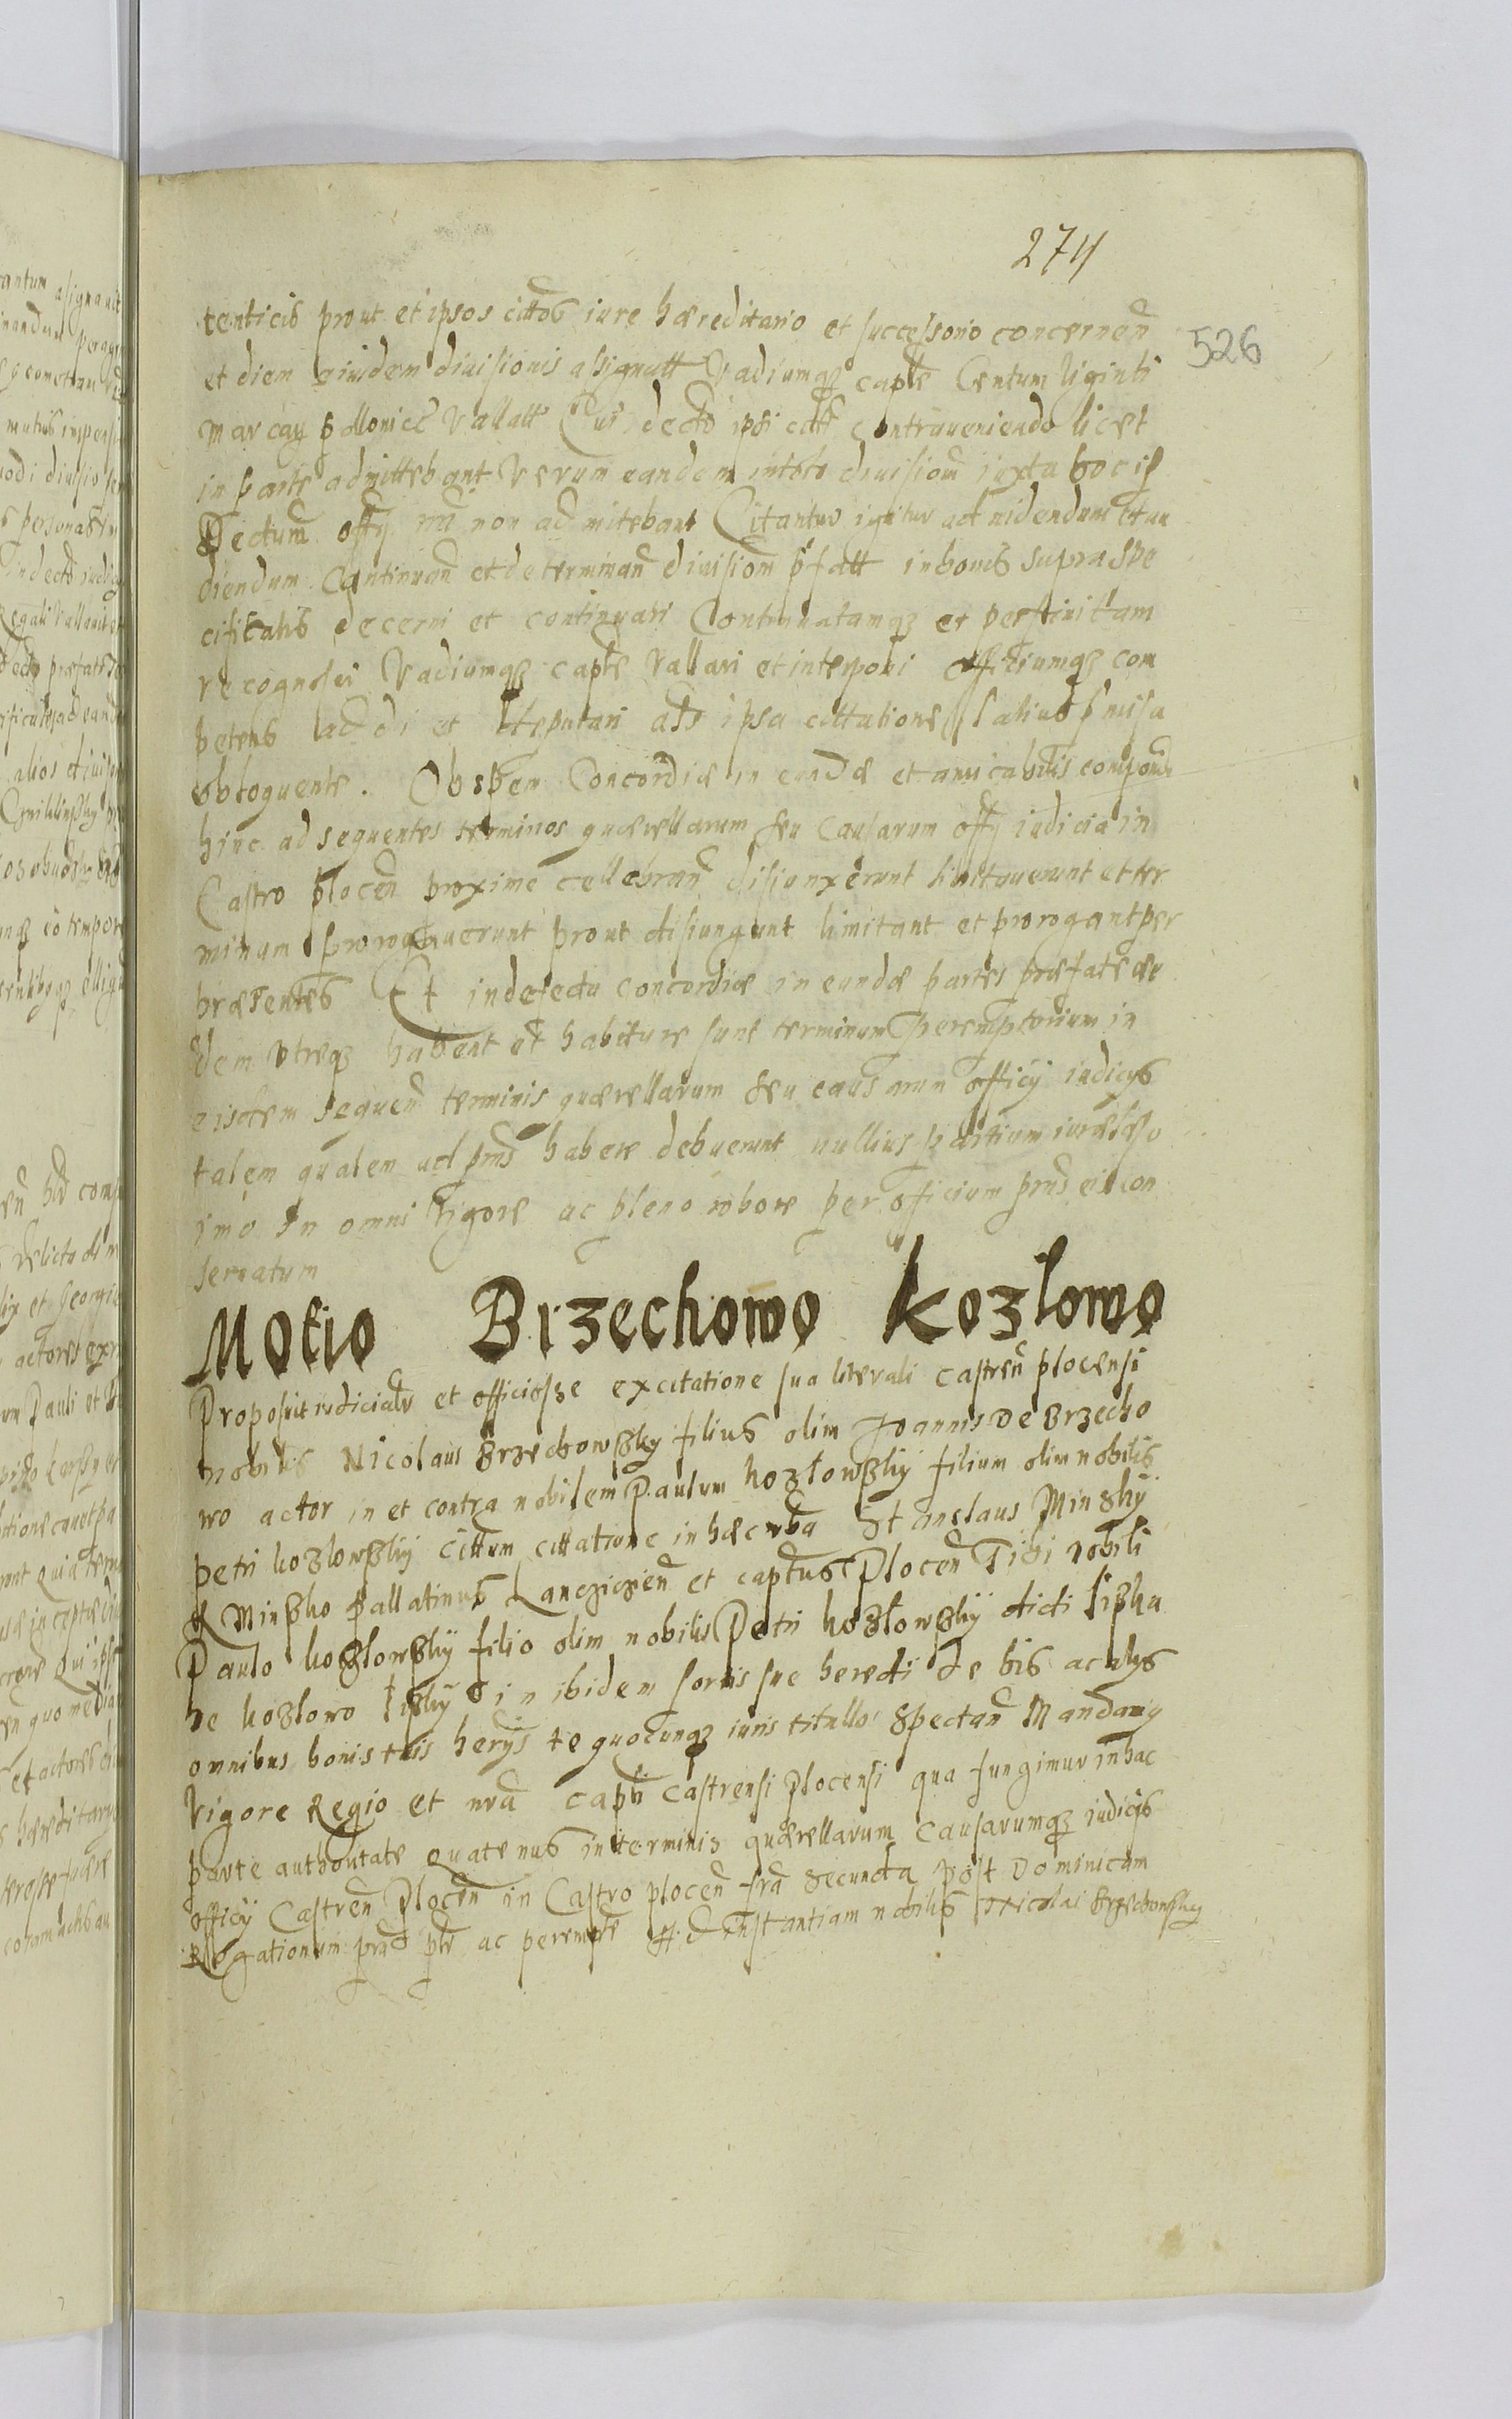 274
526
tenticis prout et ipsos cittos iure hæreditario et successorio concernen
et diem eiusdem diuisionis assignatt Vadiumqz capte Centum Viginti
marcarum pollonical Vallatt Cui decto ipsi citti contraueniendo licet
in parte admittebant Verum eandem in toto diuisionem iuxta hoc
dectum officy non admitebant Citantur igitur ad uidendum et au
diendum Continuan et determinan diuisionem pfatt in bonis supraspe
cificatis decerni et continuari Continuatamqz et perfinitam
recognosci Vadiumqz capte Vallari et interponi officiumqz com
petens addi et deputari ipsa cittatione latius pmissa
obloquente. Ob spem Concordiæ in eundæ et amicabilis componen
hinc ad sequentes terminos quærellarum seu Causarum officy iudicia in
Castro plocen proxime cellebran disiunxerunt limitauerunt et ter
minum prorogauerunt prout disiungunt limitant et prorogant per
præsentes Et in defectu concordiæ in eundæ partes præfatæ ea
dem vtreqz habent et habiture sunt terminum peremptorium in
eisdem sequen terminis quærellarum seu causarum officy iudicys
talem qualem ad prns habere debuerunt nullius partium iure læso
imo in omni Vigore ac pleno robore per officium prns eis con
seruatum
Motio Brzechowo Kozlowo
Proposuit iudicialr et officiosse excitatione sua literali castren plocensi
nobilis Nicolaus Brzechowsky filius olim Joannis De Brzecho
wo actor in et contra nobilem Paulum kozlowsky filium olim nobilis
petri kozlowsky cittum cittatione in hæc verba Stanslaus Minsky
de Minsko Pallatinus Lanczicien et captus Plocen Tibi nobili
Paulo kozlowsky filio olim nobilis Petri kozlowsky dicti lisska
de kozlowo ibidem sortis sue heredi de his ac alys
omnibus bonis tuis herys te quocunqz iuris titullo spectan Mandamy
Vigore Regio et nra capli castrensi Plocensi qua fungimur in hac
parte authoritate quatenus in terminis quærellarum Causarumqz iudicijs
officy Castren Plocen in Castro plocen fra Secunda post Dominicam
Rogationum prns plr ac perempte Ad instantiam nobilis Nicolai Brzechowsky